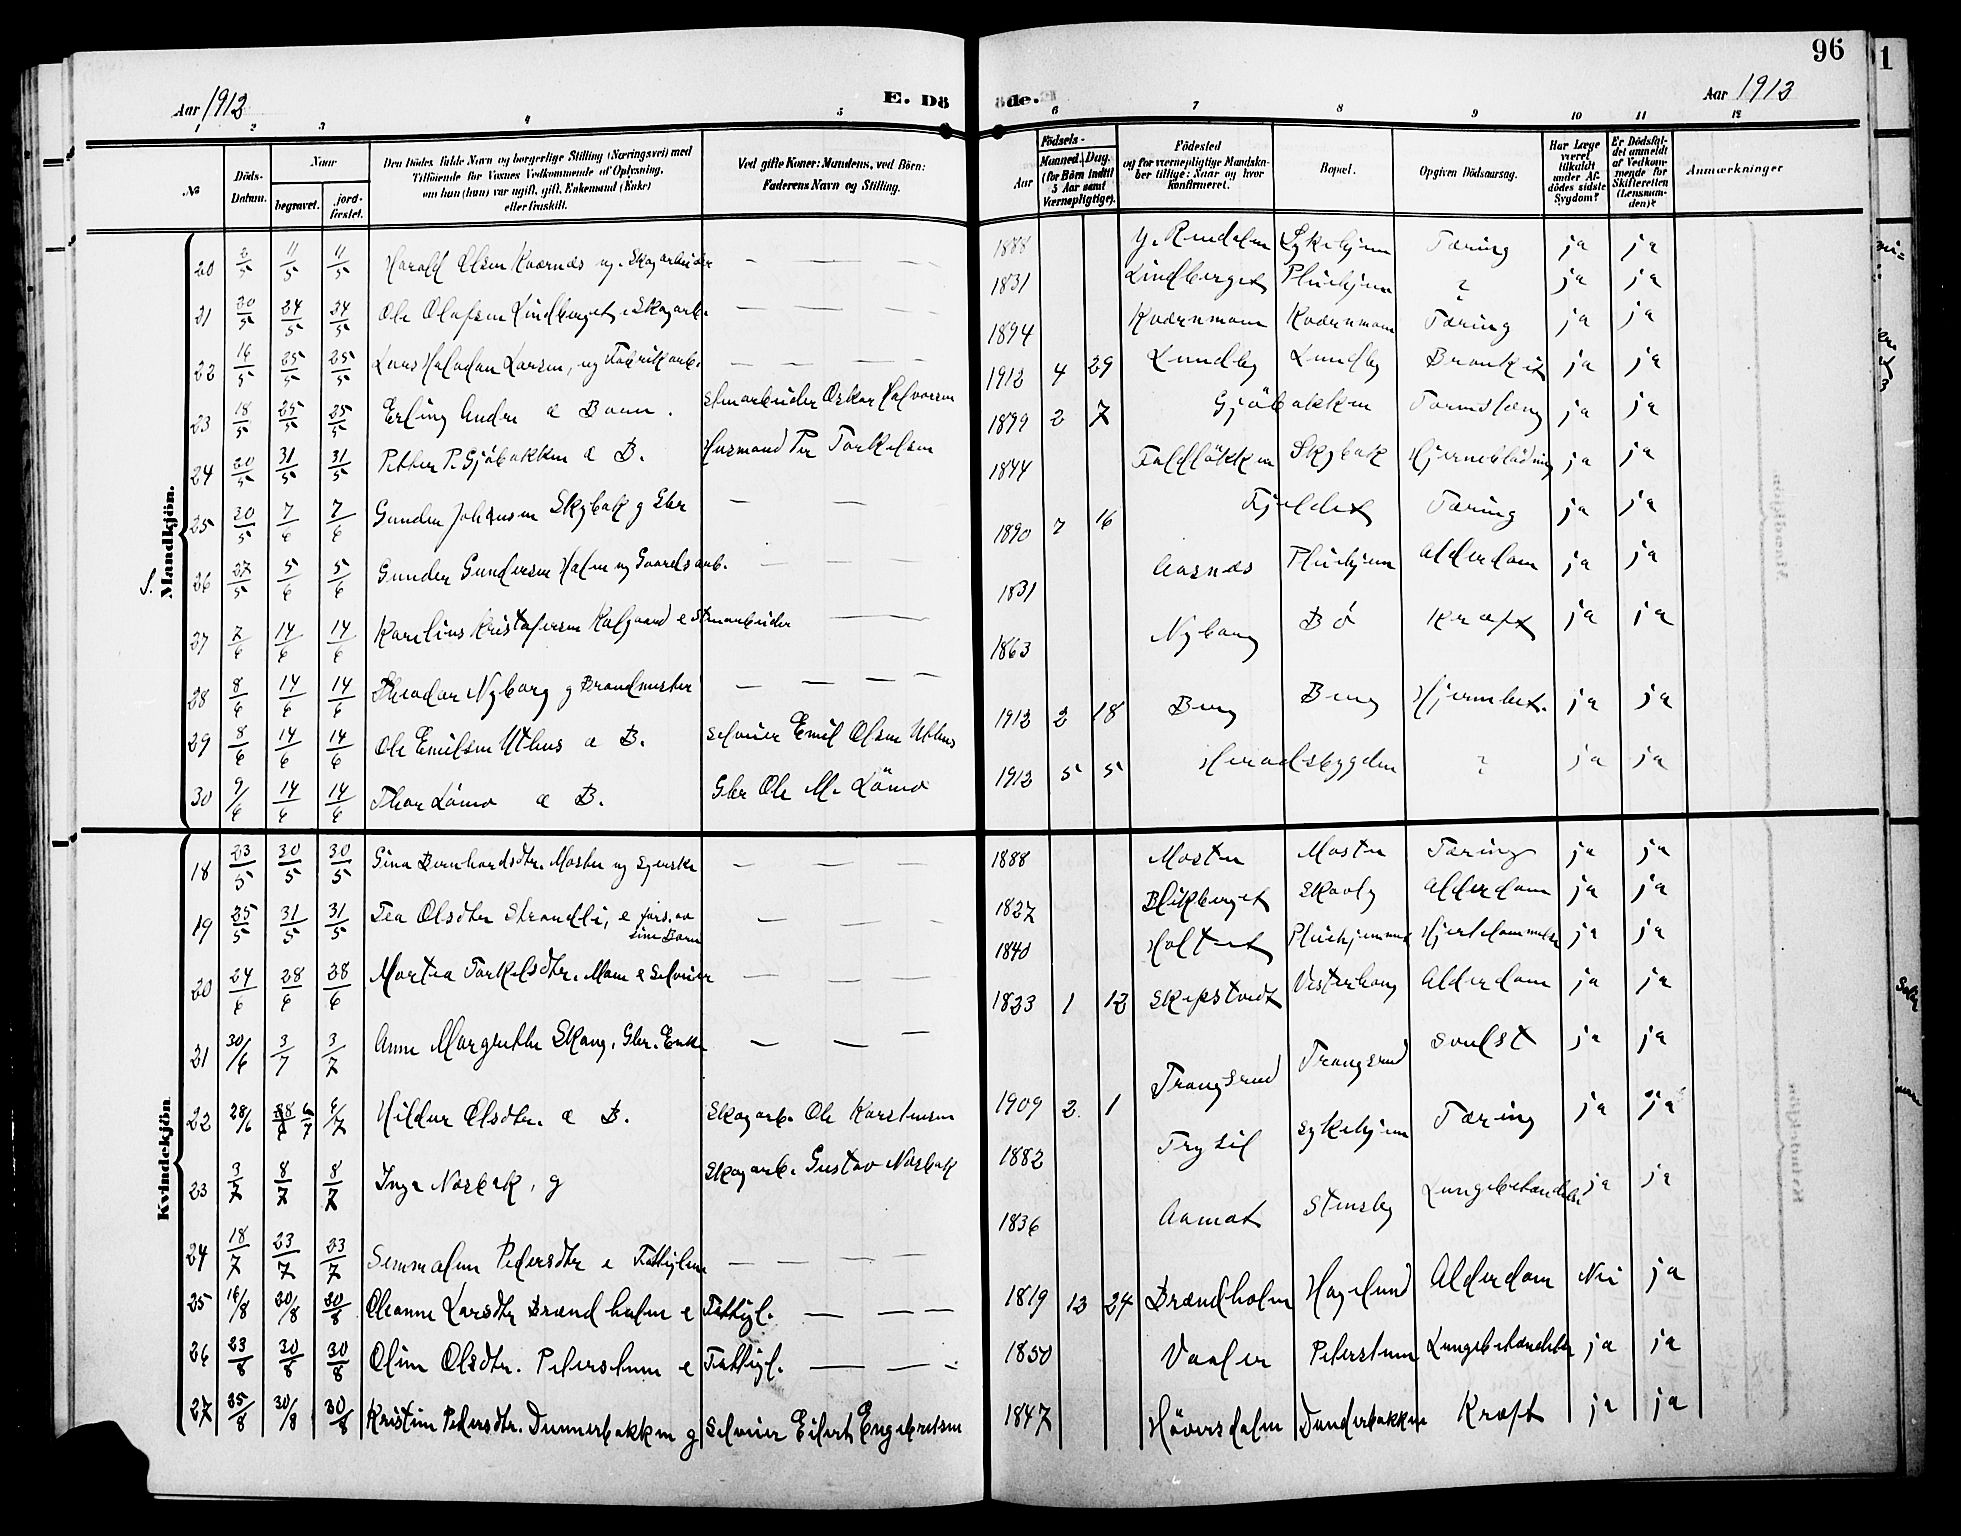 96
Aar 1912
E. Døde.
Aar 1912
1 2 3 4 5 6 7 8 9 10 11 12
№
Døds-Datum.
Naar
begravet.
jordfæstet.
Den Dødes fulde Navn og borgerlige Stilling (Næringsvei) med Tilføiende for Voxnes Vedkommende af Oplysning, om han (hun) var ugift, gift, Enkemand (Enke) eller fraskilt.
Ved gifte Koner: Mandens, ved Börn: Faderens Navn og Stilling.
Födsels-
Aar
Maaned. Dag.
(for Börn indtil 5 Aar samt Værnepligtige).
Födested og for værnepligtige Mandskaber tillige: Naar og hvor konfirmeret.
Bopæl.
Opgiven Dödsaarsag.
Har Læge været tilkaldt under Afdödes sidste Sygdom?
Er Dödsfaldet anmeldt af Vedkommende for Skifteretten (Lensmanden)?
Anmærkninger
Mandkjön.
20 2/5 11/5 11/5 Harald Olsen Kværnæs ug. Skogarbeider — — — 1888 Y. Rendalen Sykehjem Tæring ja ja
21 20/5 24/5 24/5 Ole Olafsen Lindberget, e Skogarb. — — — 1831 Lindberget Pleiehjem ? ja ja
22 16/5 25/5 25/5 Lars Halvdan Larsen, ug Fabrikarb. — — — 1894 Kværnmoen Kværnmoen Tæring ja ja
23 18/5 25/5 25/5 Erling Andre æ Barn. Stenarbeider Oskar Halvorsen 1912 4 29 Lundby Lundby Bronkit ja ja
24 20/5 31/5 31/5 Petter P. Gjöbakken æ B. Husmand Per Torkelsen 1899 2 7 Gjöbakken Tarmslæng ja ja
25 30/5 7/6 7/6 Gunder Johansen Skybak g Gbr — — 1844 Faldløkken Skybak Hjerneblödning ja ja
26 27/5 5/6 5/6 Gunder Gundersen Holm ug Gaardsarb. — — — 1890 7 16 Fjeldet Tæring ja ja
27 7/6 14/6 14/6 Karelius Kristofersen Kalgaard e Stenarbeider — — 1831 Aasnæs Pleiehjem Alderdom ja ja
28 8/6 14/6 14/6 Theodor Nyborg g Brandmester — — — — 1863 Nyborg Bö Kræft ja ja
29 8/6 14/6 14/6 Ole Emilsen Uthus æ B. Selveier Emil Olsen Uthus 1912 2 18 Berg Berg Hjernebet. ja ja
30 9/6 14/6 14/6 Thor Lömo æ B. Gbr Ole M. Lömo 1912 5 5 Heradsbygden ? ja ja
Kvindekjön.
18 23/5 30/5 30/5 Gina Bernhardsdtr. Mosten ug Syerske — — — 1888 Mosten Mosten Tæring ja ja
19 25/5 31/5 31/5 Tea Olsdtr Strandli, e fors. av sine Barn — — 1827 Blikberget Skovly Alderdom ja ja
20 24/6 28/6 28/6 Martea Torkelsdtr. Moen e Selveier — — — 1840 Holtet Pleiehjemmet Hjertelammelse ja ja
21 30/6 3/7 3/7 Anne Margrethe Skaug, Gbr. Enke — — — 1823 1 12 Skipstvedt Vesterhaug Alderdom ja ja
22 28/6 6/7 6/7 Hildur Olsdtr. æ B. Skogarb. Ole Karstensen 1909 2 1 Trangsrud Trangsrud svulst ja ja
23 3/7 8/7 8/7 Inga Norbak, g Skogarb. Gustav Norbak 1882 Trysil Sykehjem Tæring ja ja
24 18/7 23/7 23/7 Pedersdtr e Fattiglem — — — 1836 Aamot Stensby Lungebetændelse ja ja
25 16/8 20/8 20/8 Oleanne Larsdtr Brændholm e Fattigl. — — — 1819 12 24 Brændholm Hagelund Alderdom Nei ja
26 23/8 30/8 30/8 Oline Olsdtr. Peterstuen e Fattigl. — — — 1850 Vaaler Peterstuen Lungebetændelse ja ja
27 25/8 30/8 30/8 Kristine Pedersdtr. Dunnerbakken g Selveier Eilert Engebretsen 1847 Höversholm Dunderbakken Kræft ja ja